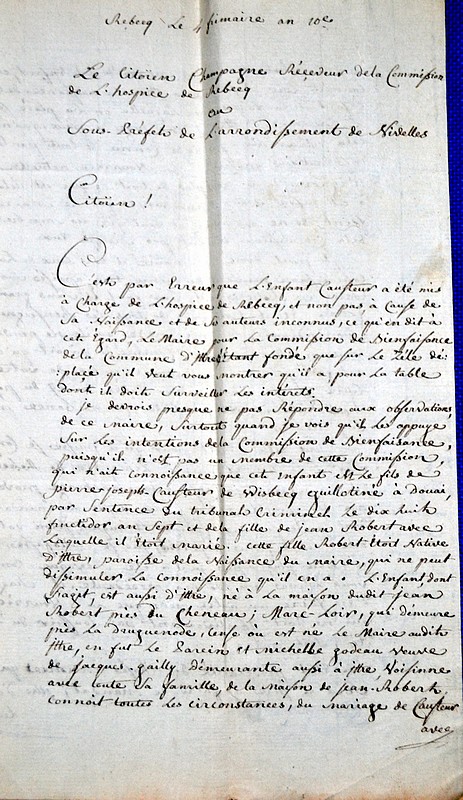 Rebecq Le 4 frimaire an 10e.
Le Citoïen Champagne Réceveur dela Commission
de L'hospice de Rebecq
au
Sous-Préfet de Larrondissement de Nivelles
Citoïen !
C'est par Erreur que L'Enfant Caufteur a été mis
à Charge de L'hospice de Rebecq, et non pas à Cause de
Sa Naissance et de So auteurs inconnus, ce qu'en dit à
cet Egard, Le Maire pour La Commission de Bienfaisance
de la Commune d'Ittre Etant fondé que sur Le Zele dé-
placé qu'il veut vous montrer qu'il a pour la table
dont il doit Surveiller Les intérets.
je devrois presque ne pas Répondre aux observations
de ce maire, Surtout quand je vois qu'il Les appuye
Sur Les intentions dela Commission de Bienfaisance,
puisqu'il n'est pas un membre de cette Commission,
qui n'ait connoissance que cet Enfant Est Le fils de
pierre joseph Caufteur de Wisbecq guillotiné à Douai,
par Sentence du tribunal Criminel Le dix huit
fructidor an Sept et dela fille de jean Robert avec
Laquelle il Etoit Marié, cette fille Robert Etoit Native
d'Ittre, paroisse dela Naissance du maire, qui ne peut
dissimuler La connoissance qu'il en a. L'Enfant dont
s'agit, est aussi d'Ittre, né à La maison dudit jean
Robert près du Cheneau; Marc Loir, qui démeure
près La druguenode, Cense où est né Le Maire audit
Ittre, en fut Le parein et Michelle godeau veuve
de jacques gailly démeurante aussi à Ittre Voisinne
avec toute Sa famille, de la Maison de jean Robert,
connoit toutes Les circonstances, du Mariage de Caufteur
avec